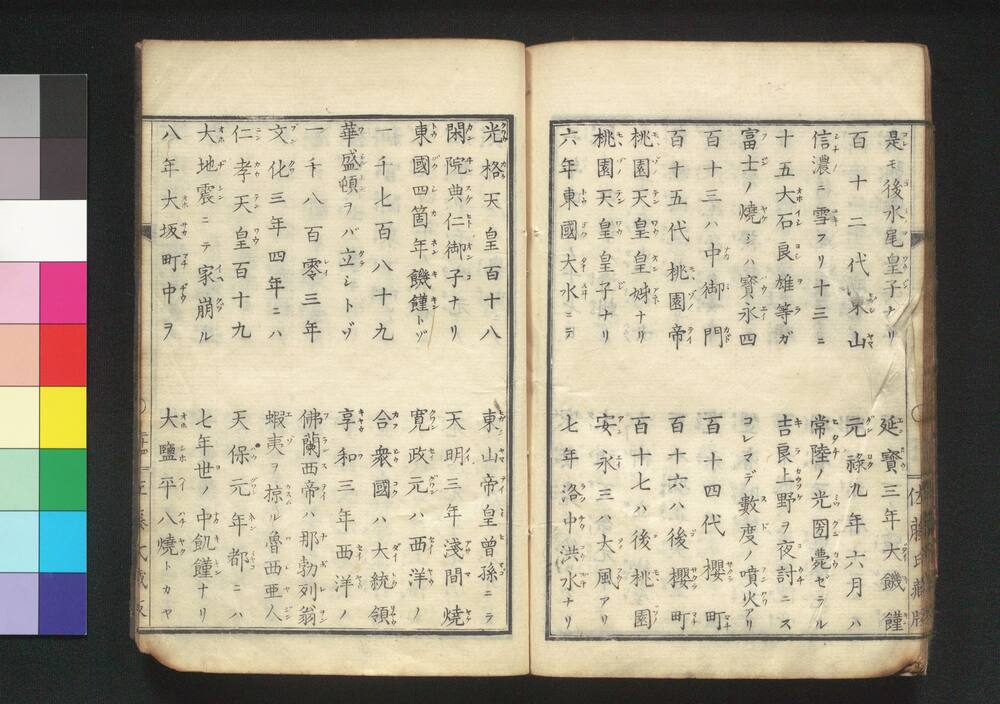 是モ後水尾皇子ナリ　延寶三年大饑饉
百十二代東山　元祿九年六月ハ
信濃ニ雪フリ十三ニ　常陸ノ光圀薨ゼラル
十五大石良雄等ガ　吉良上野ヲ夜討ニス
富士ノ燒シハ寶永四　コレマデ數度ノ噴火アリ
百十三ハ中御門　百十四代櫻町
百十五代桃園帝　百十六ハ後櫻町
桃園天皇皇姊ナリ　百十七ハ後桃園
桃園天皇皇子ナリ　安永三ハ大風アリ
六年東國大水ニテ　七年洛中洪水ナリ
光格天皇百十八　東山帝皇曾孫ニテ
閑院典仁御子ナリ　天明三年淺間燒
東國四箇年饑饉トゾ　寬政元ハ西洋ノ
一千七百八十九　合衆國ハ大統領
華盛頓ヲバ立シトゾ　享和三年西洋ノ
一千八百零三年　佛蘭西帝ハ那勃列翁
文化三年四年ニハ　蝦夷ヲ掠ル魯西亜人
仁孝天皇百十九　天保元年都ニハ
大地震ニテ家崩ル　七年世ノ中飢饉ナリ
八年大坂町中ヲ　大鹽平八燒トカヤ